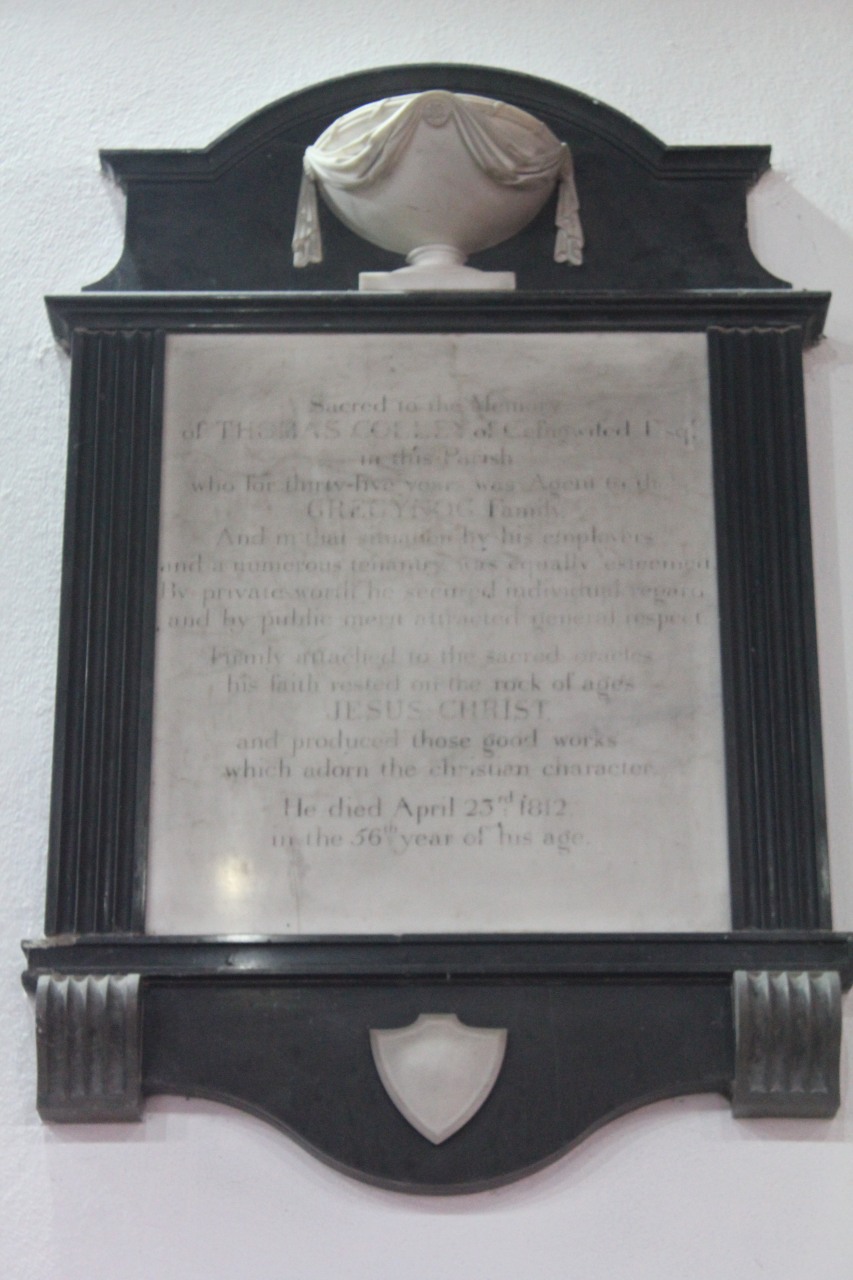 Sacred to the Memory
of THOMAS COLLEY of Cefngwifed Esqr.
in this Parish
who for thirty-five years was Agent to the
GREGYNOG Family.
And in that situation by his employers
and a numerous tenantry was equally esteemed.
By private worth he secured individual regard
and by public merit attracted general respect.
Firmly attached to the sacred oracles
his faith rested on the rock of ages
JESUS CHRIST
and produced those good works
which adorn the christian character.
He died April 23rd. 1812
in the 56th year of his age.